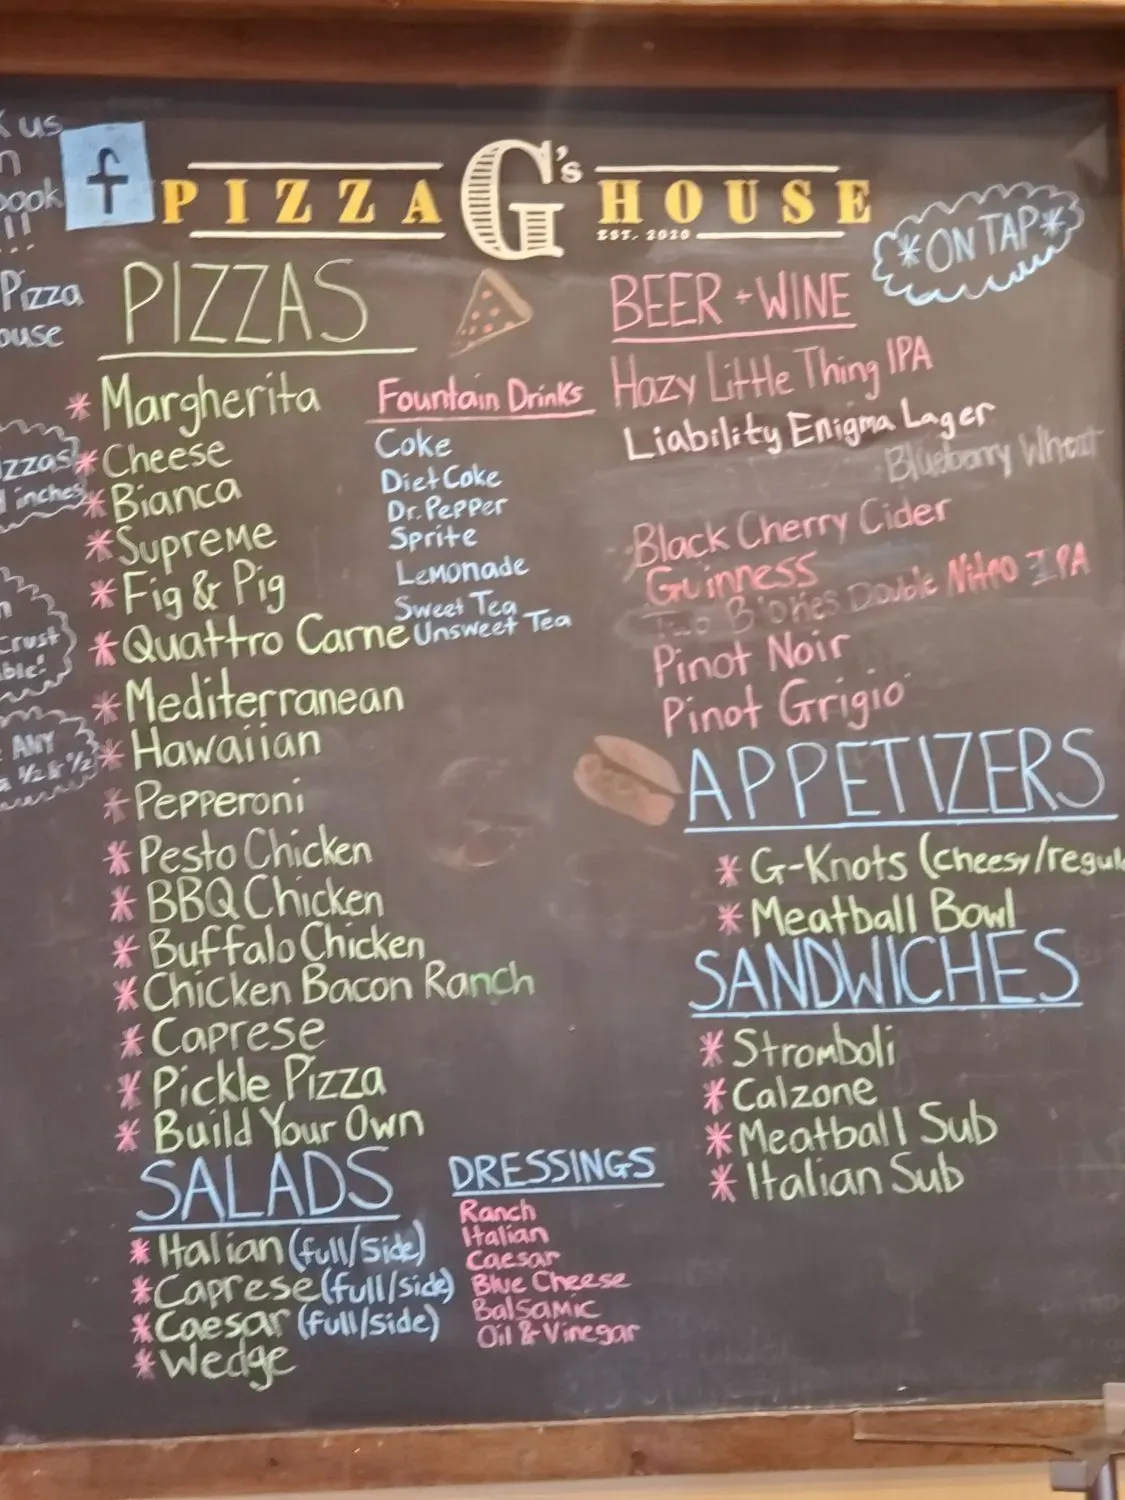 us
f
PIZZA G's HOUSE
EST. 2020
Pizza
*ON TAP*
PIZZAS
* Margherita
* Cheese
* Bianca
* Supreme
* Fig & Pig
* Quattro Carne
* Mediterranean
* Hawaiian
* Pepperoni
* Pesto Chicken
* BBQ Chicken
* Buffalo Chicken
* Chicken Bacon Ranch
* Caprese
* Pickle Pizza
* Build Your Own
Fountain Drinks
Coke
Diet Coke
Dr. Pepper
Sprite
Lemonade
Sweet Tea
Unsweet Tea
BEER + WINE
Hazy Little Thing IPA
Liability Enigma Lager
Blueberry Wheat
Black Cherry Cider
Guinness
Double Nitro IPA
Pinot Noir
Pinot Grigio
APPETIZERS
* G-Knots (cheesy/regul
* Meatball Bowl
SANDWICHES
* Stromboli
* Calzone
* Meatball Sub
* Italian Sub
SALADS
* Italian (full/side)
* Caprese (full/side)
* Caesar (full/side)
* Wedge
DRESSINGS
Ranch
Italian
Caesar
Blue Cheese
Balsamic
Oil & Vinegar
inches
Crust
ANY
1/2 & 1/2